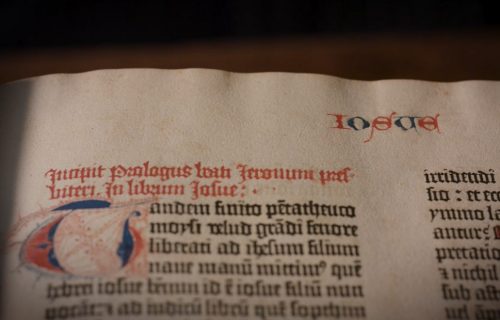 Iosue
Incipit Prologus beati Jeronimi pres-
biteri. In librum Josue:·
Tandem finito pētatheuco
moysi velud grādi fenore
liberati ad ihesum filium
naue manū mittim⁹ quē
hebrei iosue bēnun id ē iosue filiū nun
vocāt: et ad iudicū librū quē sopthim
irridendi
sio : et ec
ymmo la
antur
pretatio
et nichil
sub ast